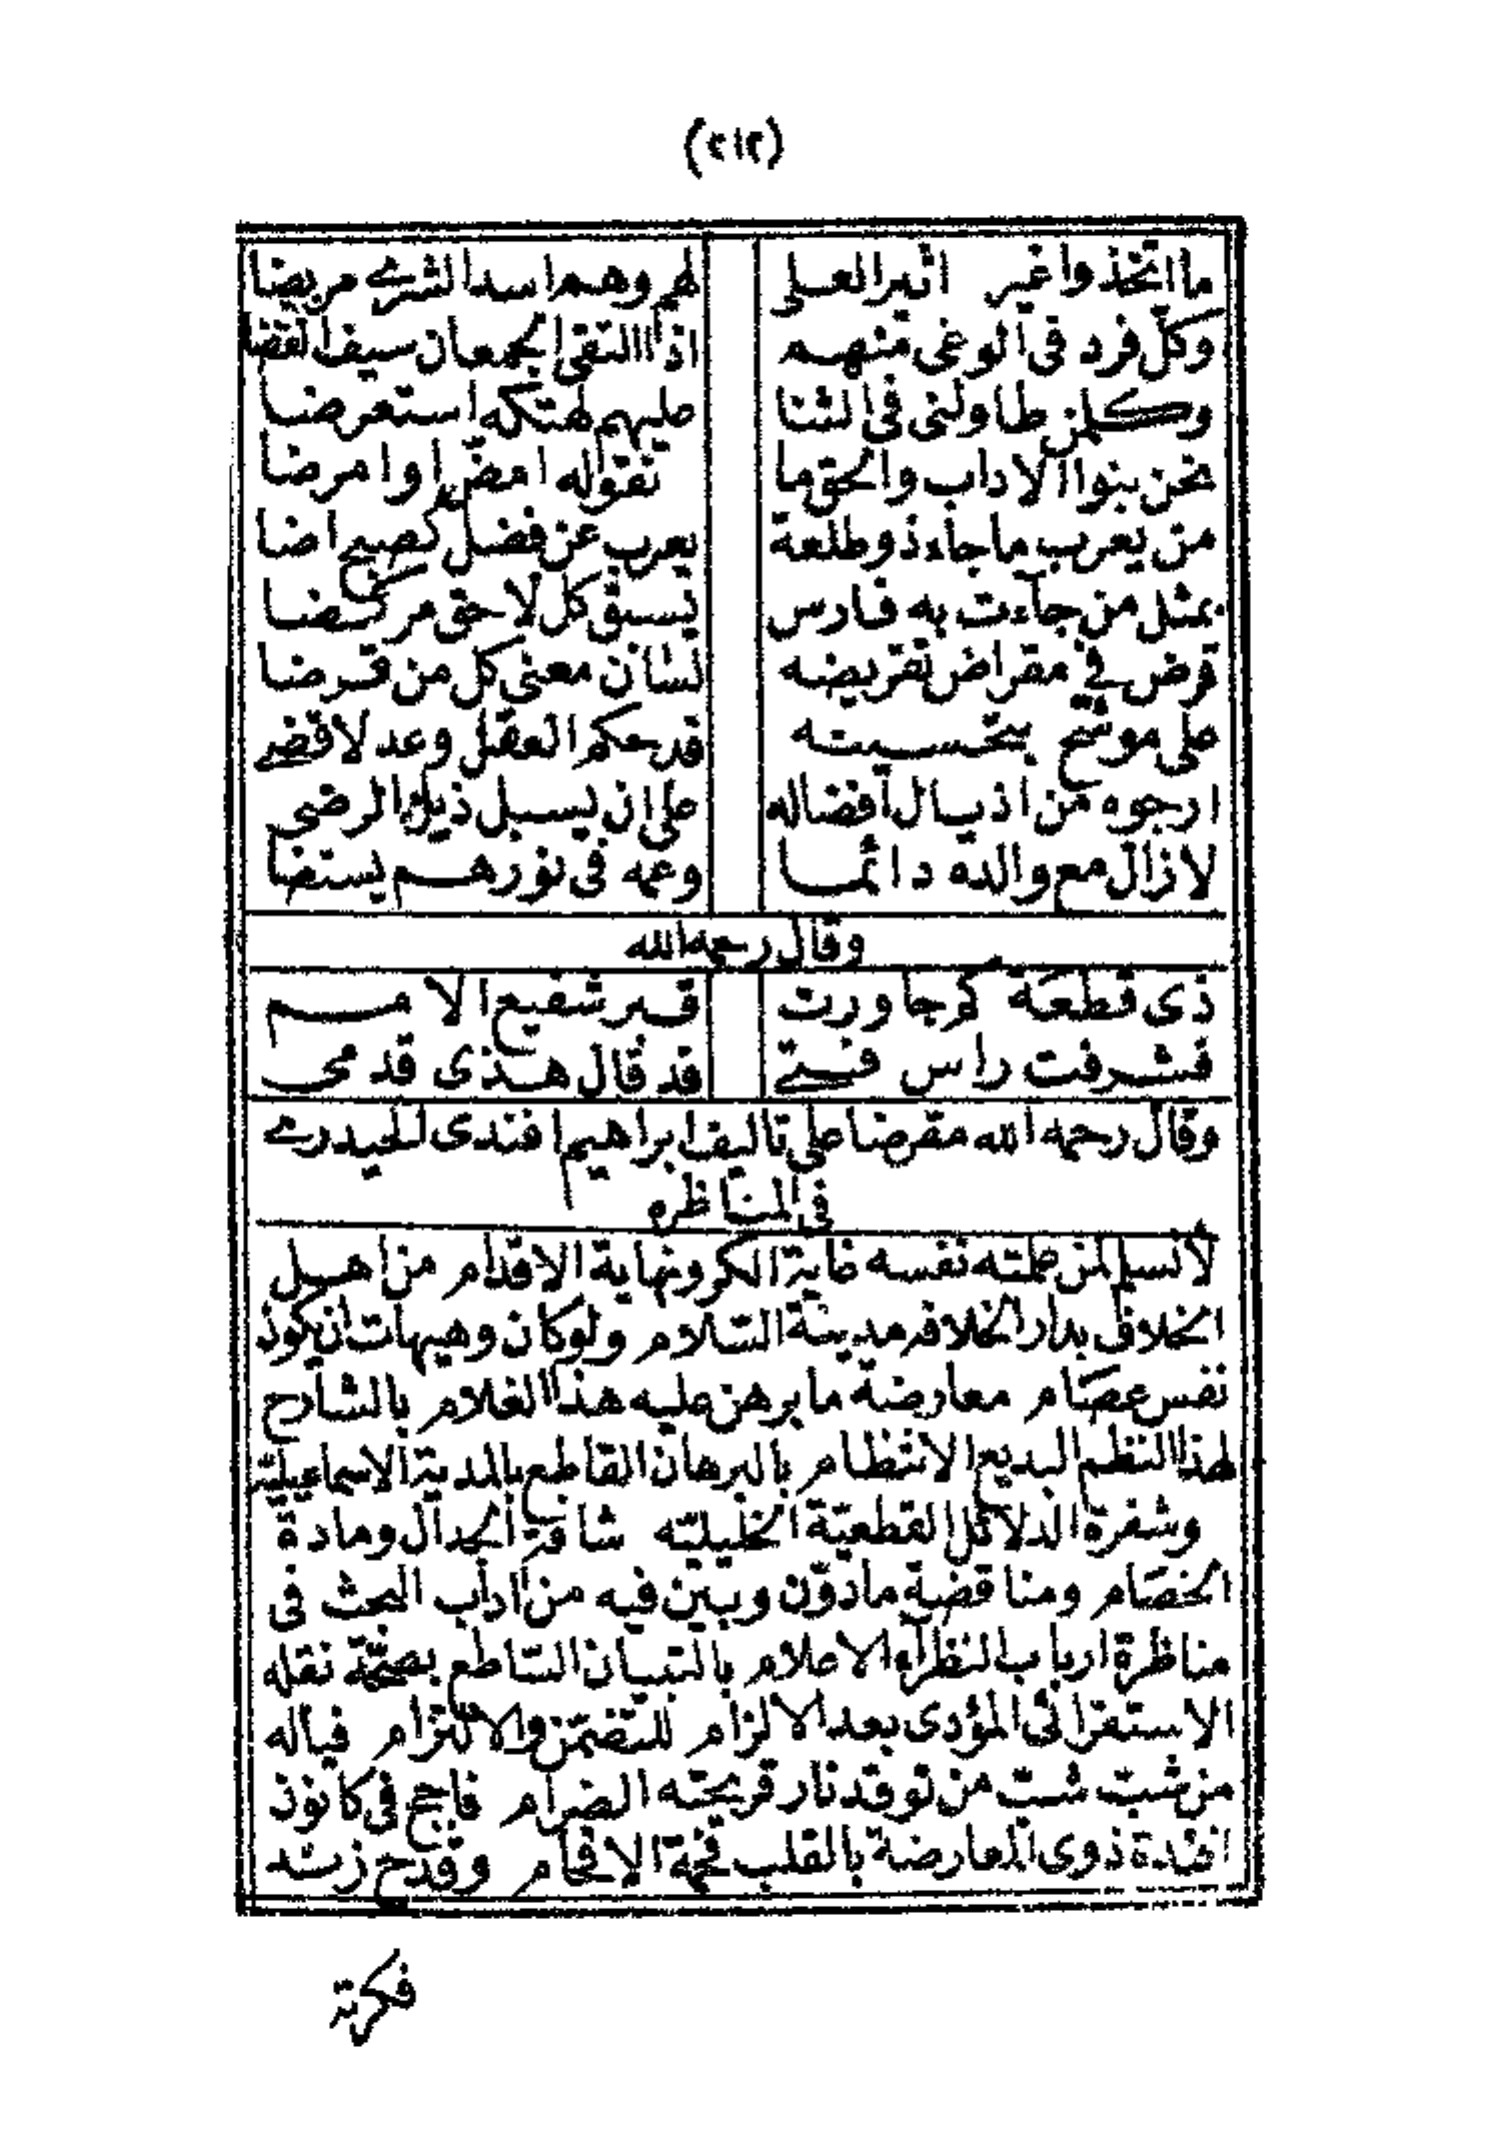 (٢١٢)
ما اتخذوا غير اثير العلى لهم وهم اسد الشرى مربضا
وكل فرد في الوغى منهم اذا التقى الجمعان سيف القضا
وكلمن طاولنى فى الثنا عليهم لهتكه استعرضا
نحن بنوا الاداب والحق ما نقوله امضّ او امرضا
من يعرب ما جاء ذو طلعة يعرب عن فضل كصبح اضا
بمثل من جاءت به فارس يسبق كل لاحق مركضا
قرض في مقراض تقريضه لسان معنى كل من قرضا
على موشح بتخسيته قد حكم العقل وعدلا قضى
ارجوه من اذيال افضاله على ان يسبل ذيل الرضى
لازال مع والده دائما وعمه فى نورهم يستضا
وقال رحمه الله
ذى قطعة كم جاورت قبر شفيع الامم
فشرفت راس فتى قد قال هذى قدمى
وقال رحمه الله مقرضا على تاليف ابراهيم افندى الحيدرى
فى المناظره
لانسلم لمن علمته نفسه غاية الكر ونهاية الاقدام من اهل
الخلاف بدار الخلافه مدينة السّلام ولوكان وهيهات ان يكون
نفس عصام معارضة ما برهن عليه هذا الغلام بالشارح
لهذا النظم البديع الانتظام بالبرهان القاطع بالمدية الاسماعيليّة
وشفرة الدلائل القطعيّة الخليليّه شافة الجدال ومادة
الخصام ومناقضة ما دوّن وبيّن فيه من اداب البحث فى
مناظرة ارباب النظر الاعلام بالتبيان السّاطع بصحّة نقله
الاستقرائى المؤدى بعد الالزام للتضمّن والالتزام فياله
من شبّ شبّ من توقد نار قريحته الضرام فاجج فى كانون
افئدة ذوى المعارضة بالقلب فحمة الافحام وقدح زند
فكرته